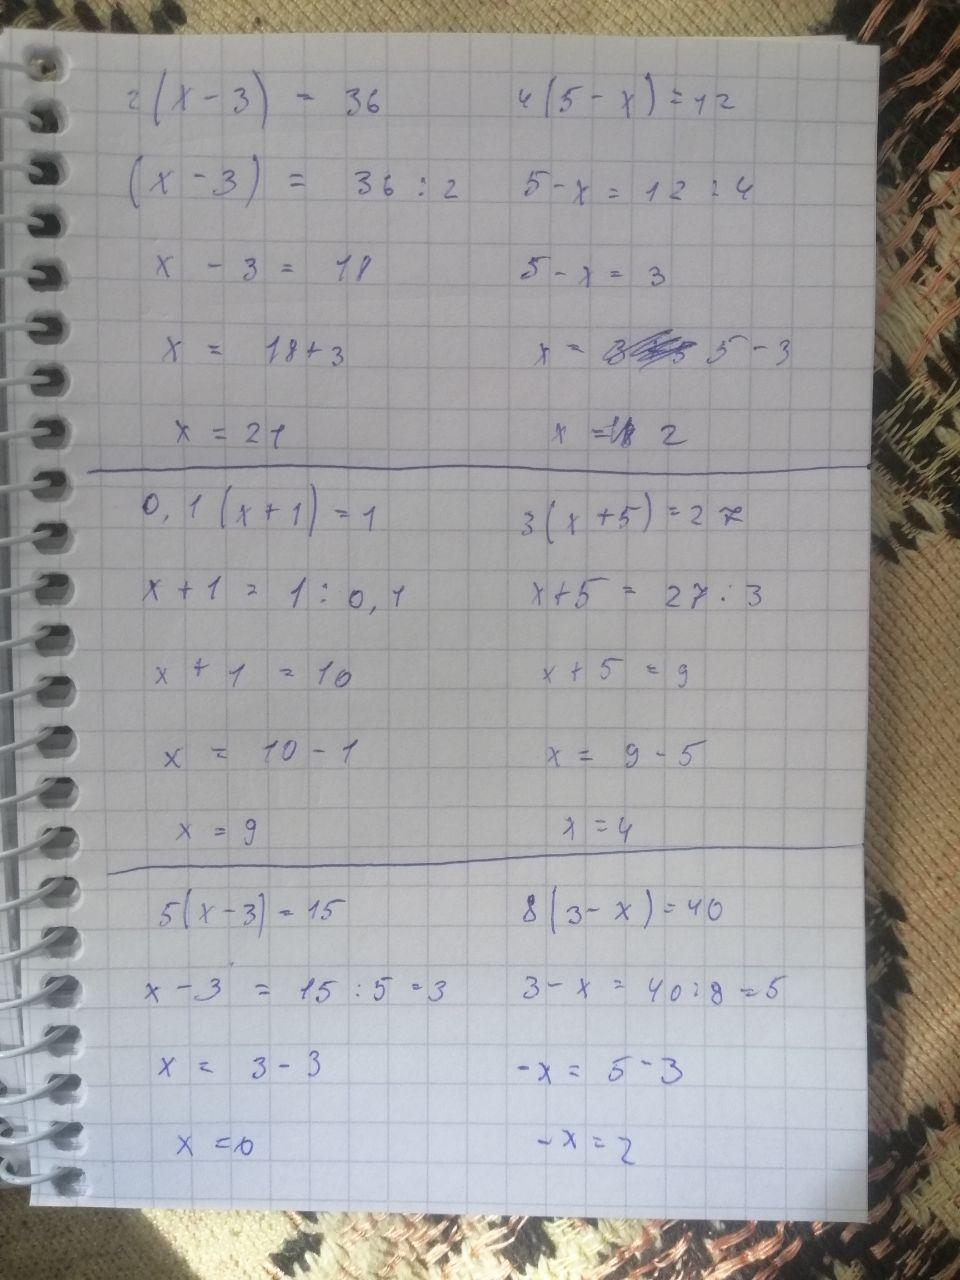 2(x-3) = 36
(x-3) = 36:2
x - 3 = 18
x = 18+3
x = 21
4(5-x)=12
5-x = 12:4
5-x = 3
x = 5-3
x = 2
0,1(x+1)=1
x+1 = 1:0,1
x+1 = 10
x = 10-1
x = 9
3(x+5)=27
x+5 = 27:3
x+5 = 9
x = 9-5
x = 4
5(x-3)=15
x-3 = 15:5=3
x = 3-3
x = 0
8(3-x)=40
3-x = 40:8=5
-x = 5-3
-x = 2